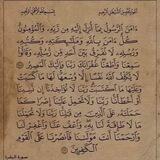 ءَامَنَ الرَّسُولُ بِمَا أُنزِلَ إِلَيْهِ مِن رَّبِّهِ وَالْمُؤْمِنُونَ
كُلٌّ ءَامَنَ بِاللَّهِ وَمَلَٰٓئِكَتِهِ وَكُتُبِهِ
وَرُسُلِهِ لَا نُفَرِّقُ بَيْنَ أَحَدٍ مِّن رُّسُلِهِ وَقَالُوا
سَمِعْنَا وَأَطَعْنَا غُفْرَانَكَ رَبَّنَا وَإِلَيْكَ الْمَصِيرُ
لَا يُكَلِّفُ اللَّهُ نَفْسًا إِلَّا وُسْعَهَا لَهَا مَا كَسَبَتْ
وَعَلَيْهَا مَا اكْتَسَبَتْ رَبَّنَا لَا تُؤَاخِذْنَا إِن نَّسِينَا
أَوْ أَخْطَأْنَا رَبَّنَا وَلَا تَحْمِلْ عَلَيْنَا إِصْرًا كَمَا
حَمَلْتَهُ عَلَى الَّذِينَ مِن قَبْلِنَا رَبَّنَا وَلَا تُحَمِّلْنَا
مَا لَا طَاقَةَ لَنَا بِهِ وَاعْفُ عَنَّا وَاغْفِرْ لَنَا
وَارْحَمْنَا أَنتَ مَوْلَٰنَا فَانصُرْنَا عَلَى الْقَوْمِ
الْكَٰفِرِينَ
سورة البقرة